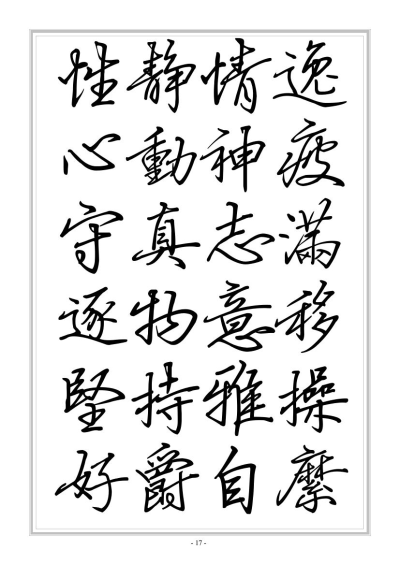 性静情逸
心動神疲
守真志滿
逐物意移
堅持雅操
好爵自縻
- 17 -